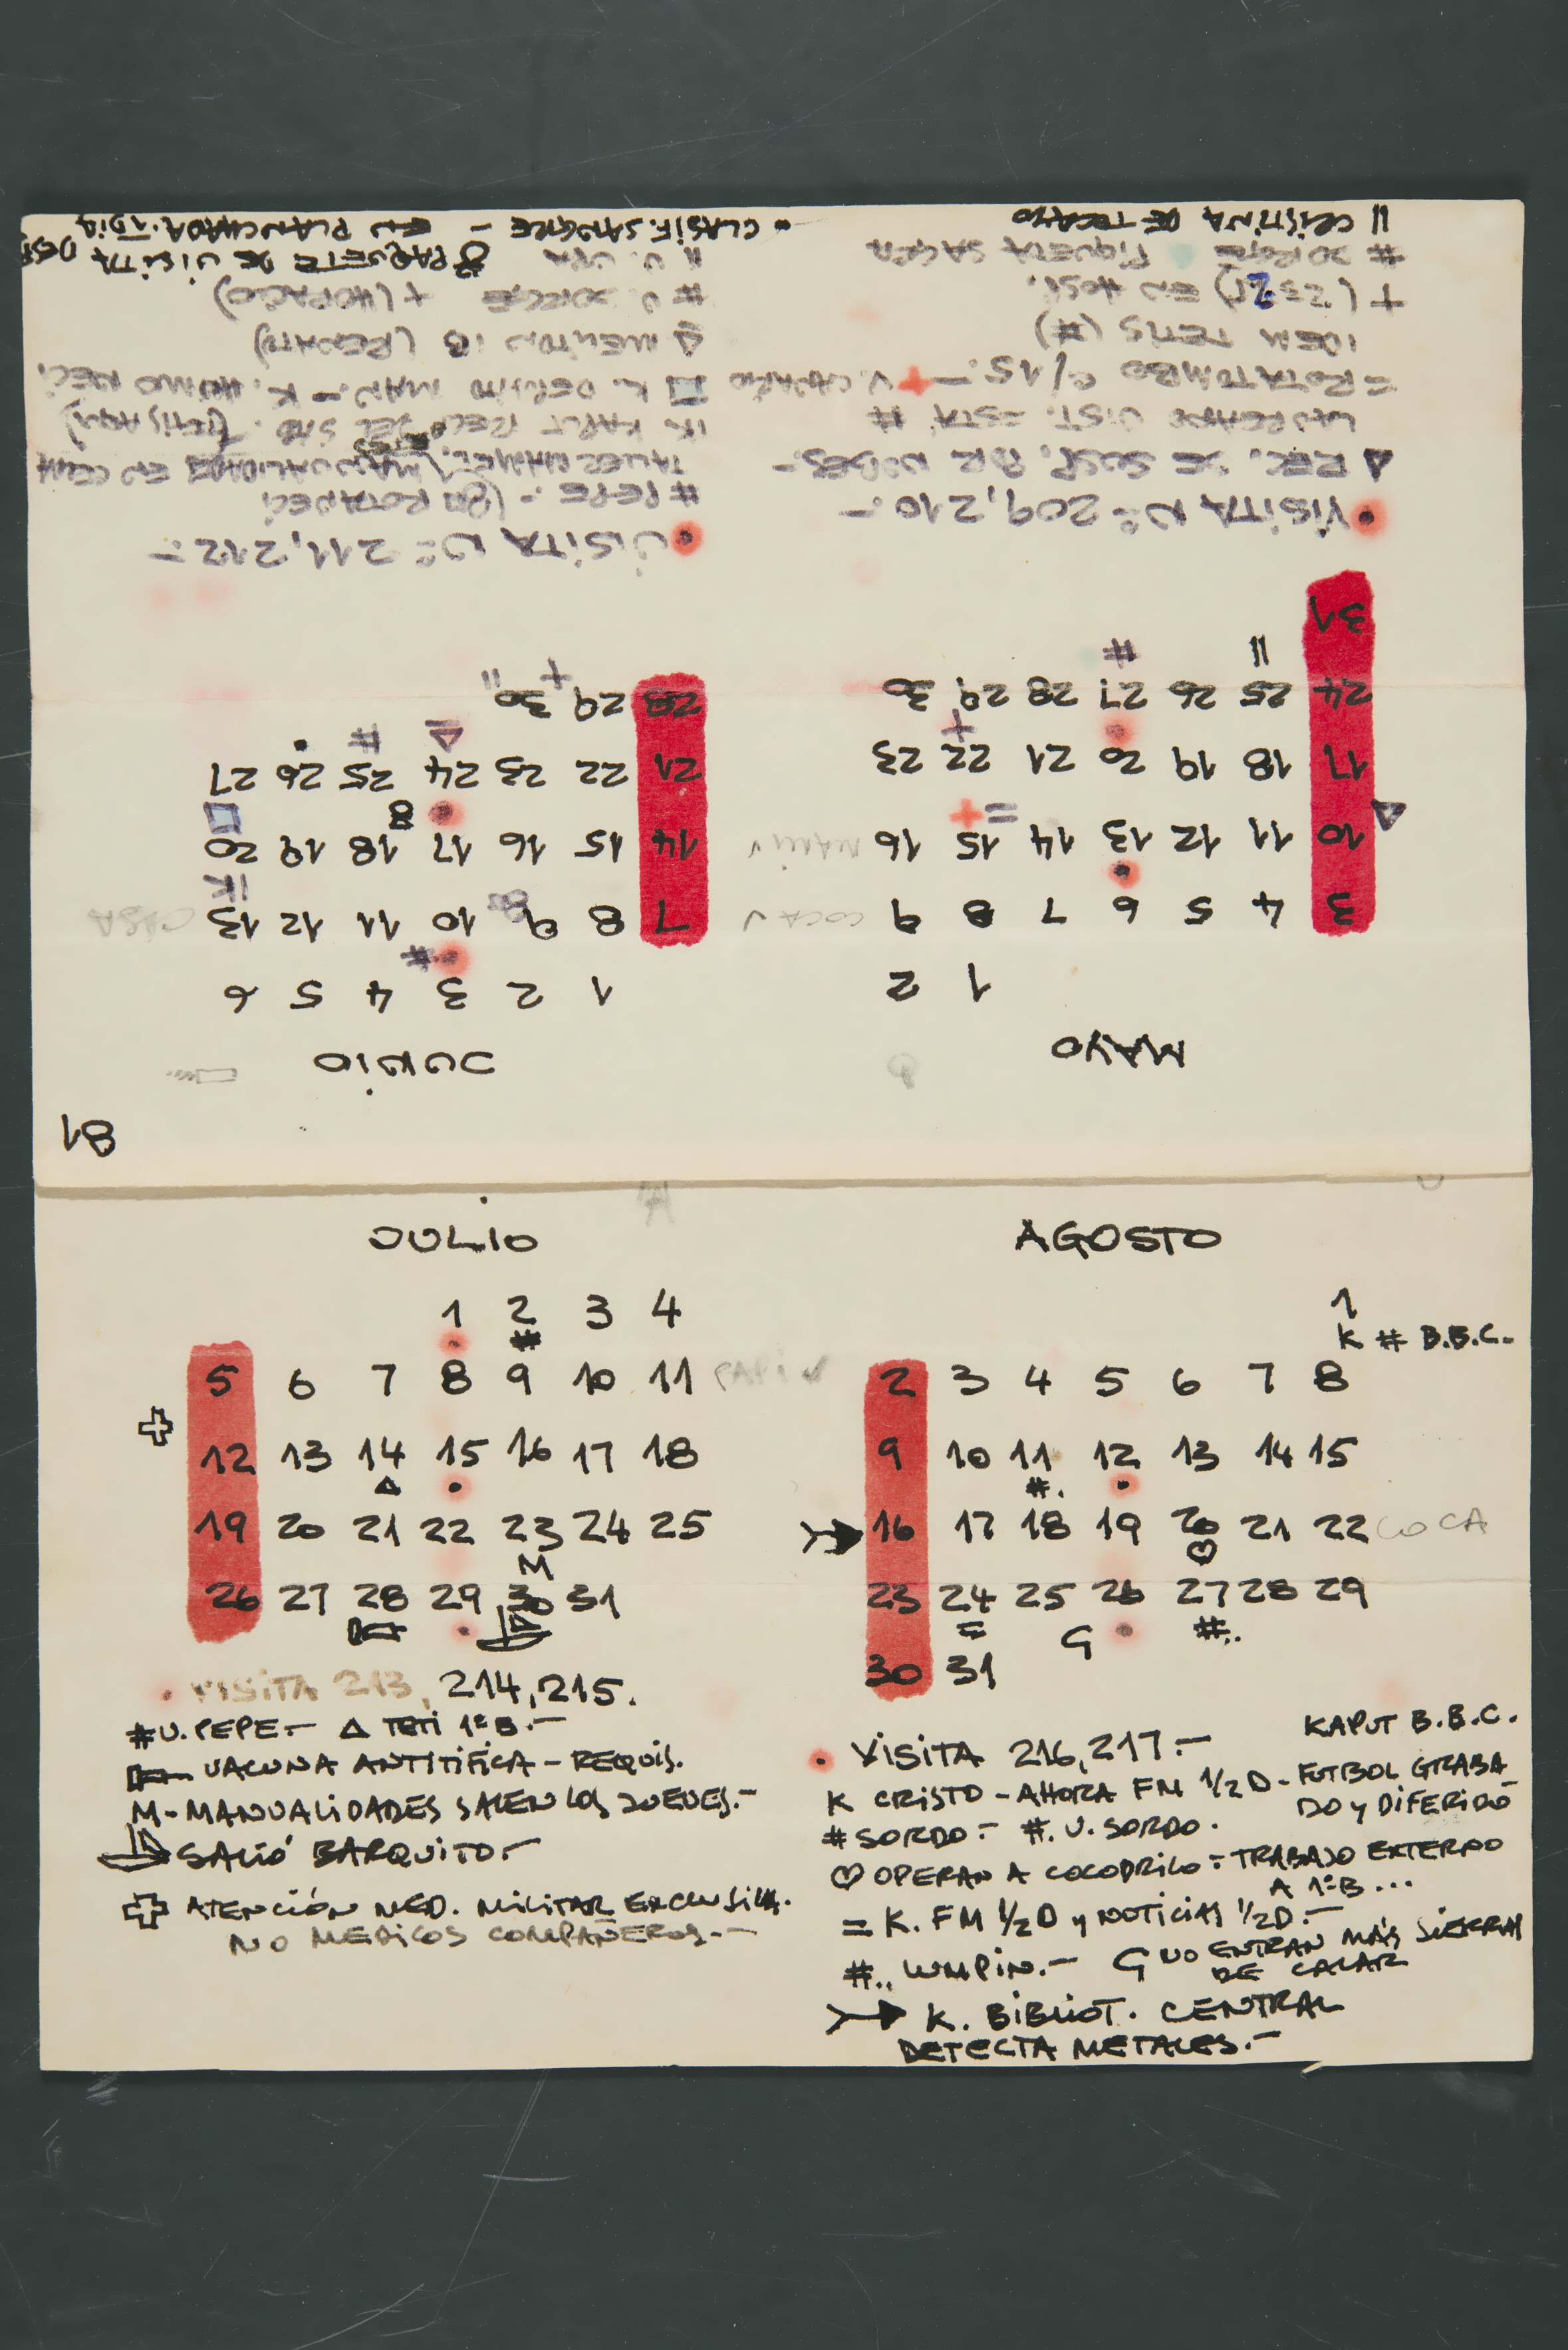 JULIO
1 2 3 4
5 6 7 8 9 10 11 PAPI
12 13 14 15 16 17 18
19 20 21 22 23 24 25
M
26 27 28 29 30 31
• VISITA 213, 214, 215.
# V. PEPE.— △ TETI 1º B.—
VACUNA ANTITIFICA – REQUIS.
M - MANUALIDADES SALEN LOS JUEVES.—
SALIÓ BARQUITO.—
ATENCIÓN MED. MILITAR EXCLUSIVA.
NO MEDICOS COMPAÑEROS.—
AGOSTO
1
K # B.B.C.
2 3 4 5 6 7 8
9 10 11 12 13 14 15
#. •
→ 16 17 18 19 20 21 22 COCA
♡
23 24 25 26 27 28 29
= G • #..
30 31
• VISITA 216, 217.—
KAPUT B.B.C.
K CRISTO – AHORA FM 1/2 D – FUTBOL GRABA
DO y DIFERIDO
# SORDO.— #. V. SORDO.
♡ OPERAN A COCODRILO = TRABAJO EXTERNO
A 1º B...
= K. FM 1/2 D y NOTICIAS 1/2 D.—
#.. LUMPIN.— G NO ENTRAN MÁS SIERRAS
DE CALAR
→ K. BIBLIOT. CENTRAL
DETECTA METALES.—
81
MAYO
1 2
3 4 5 6 7 8 9 COCA ✓
10 11 12 13 14 15 16 MAMI ✓
17 18 19 20 21 22 23
24 25 26 27 28 29 30
31
• VISITA Nº 209, 210.—
△ REC. SE SUSP. POR
VIST. ESTA #
= ROTATOMBO C/15.— + V. CANARIO
IDEM TETIS (#)
+ (22 = 21) EN HOSP.
# JORGE PIQUETA SACAN
|| CRISTINA DE TOCAYO
JUNIO
1 2 3 4 5 6
7 8 9 10 11 12 13 CASA
14 15 16 17 18 19 20
21 22 23 24 25 26 27
28 29 30
• VISITA Nº 211, 212.—
# PEPE.—
TALLER (MANUALIDADES EN
K KAPUT REC DEL SAB. (TETIS AQUI)
K. DERITO MAN.— K. HOMO DECI
△ 18 (REGATO)
# V. JORGE + (HOPALO)
|| V. PAQUETE DE VISITA
• CLASIF. SANGRE — EN PLANCHADA. 1 DIA